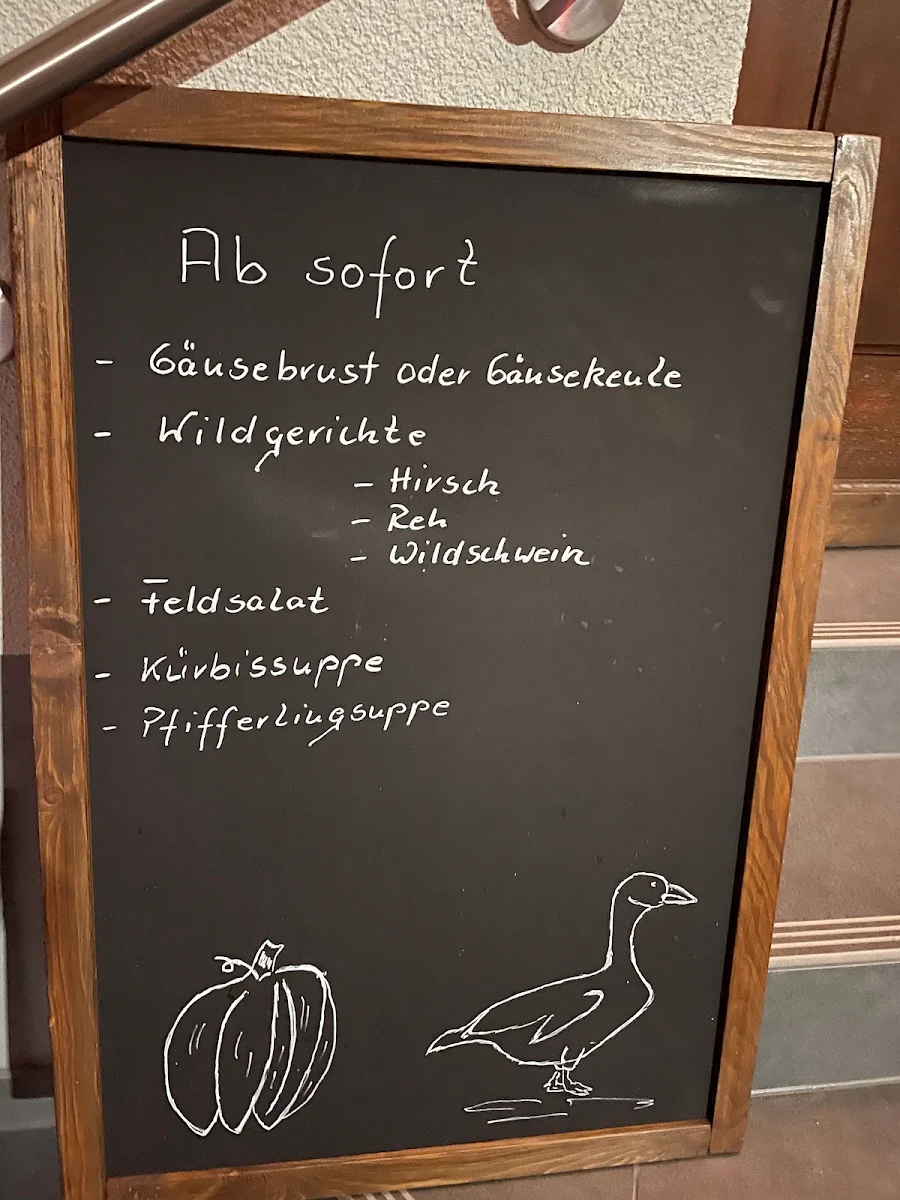 Ab sofort
- Gänsebrust oder Gänsekeule
- Wildgerichte
- Hirsch
- Reh
- Wildschwein
- Feldsalat
- Kürbissuppe
- Pfifferlingsuppe